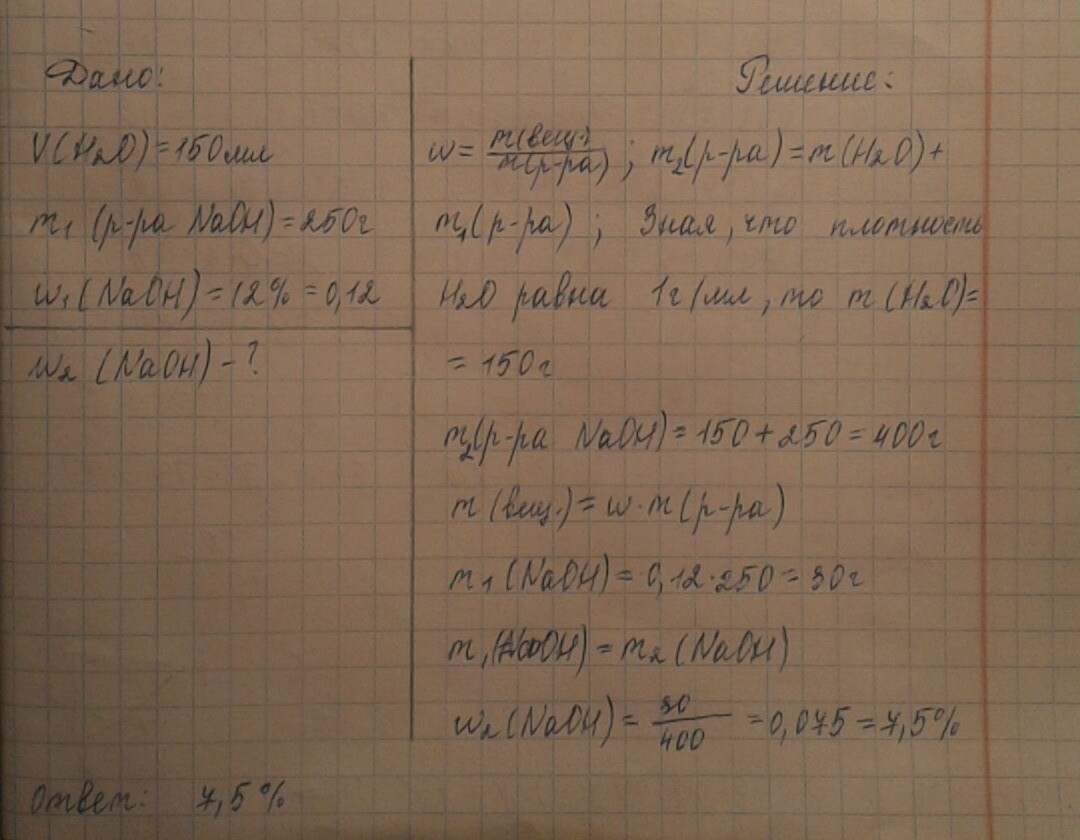 Дано:
V(H₂O)=150мл
m₁ (р-ра NaOH)=250г
w₁(NaOH)=12%=0,12
w₂ (NaOH)-?
Решение:
w= m(вещ.)/m(р-ра) ; m₂(р-ра)=m(H₂O)+
m₁(р-ра) ; Зная, что плотность
H₂O равна 1г/мл, то m(H₂O)=
= 150г
m₂(р-ра NaOH)=150+250=400г
m (вещ.)= w·m(р-ра)
m₁(NaOH)=0,12·250=30г
m₁(NaOH)=m₂(NaOH)
w₂(NaOH)= 30/400 =0,075=7,5%
Ответ: 7,5%